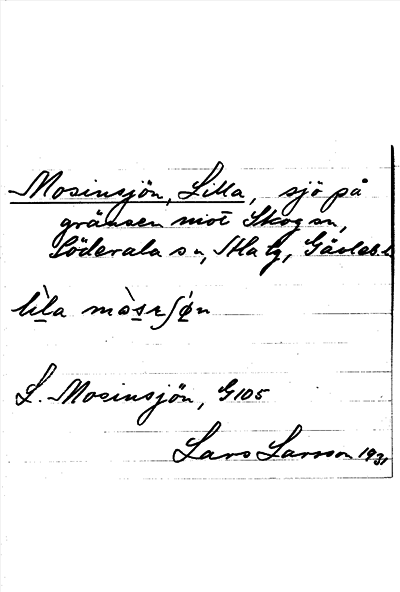 Mosinsjön, Lilla, sjö på
gränsen mot Skog sn,
Söderala sn, Hälg, Gävleb. l.
lìla mòseʃø̀n
L. Mosinsjön, G105
Lars Larsson 1931